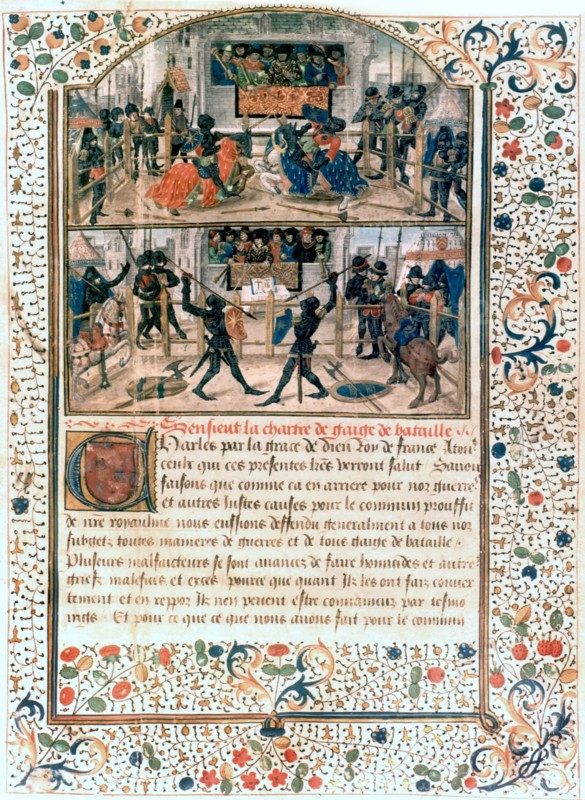 Sensieut la chartre de gaige de bataille
Charles par la grace de dieu Roy de france A tou
ceulx qui ces presentes lrēs verront salut Sauou
faisons que comme ca en arriere pour nor guerre
et autres Iustes causes pour le commun prouffit
de nrē royaulme nous eussions deffendu generalment a tous nor
subgetz toutes manieres de guerres et de tous gaige de bataille
Plusieurs malfaicteurs se sont auancez de faire homicides et autre
griefz malefices et exces pource que quant Ilz les ont faiz couuer
tement et en reppoz Ilz nen peuent estre conuaincuz par tesmo
ings Et pour ce que ce que nous auons fait pour le commun